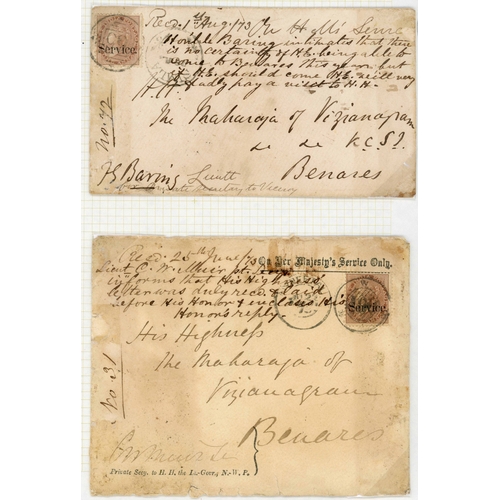 Recd. 1st Aug/73 On H M's Service
Service
Honble Baring intimates that there
is no certainty of H.E. being able to
come to Benares this year but
if H.E. should come H.E. will very
gladly pay a visit to H.H.
H.H.
The Maharaja of Vizianagram
K.C.S.I.
No. 72
HBaring Lieutt
Benares
Private Secretary to Viceroy
Recd. 25th June/73
On Her Majesty's Service Only.
Lieut. C.
informs that His High's
letter was duly recd. & laid
before His Honor & encloses His
Honor's reply.
Service
His Highness
The Maharaja of
Vizianagram
Benares
No. 31
Private Secy. to H. H. the Lt.-Govr., N.-W. P.